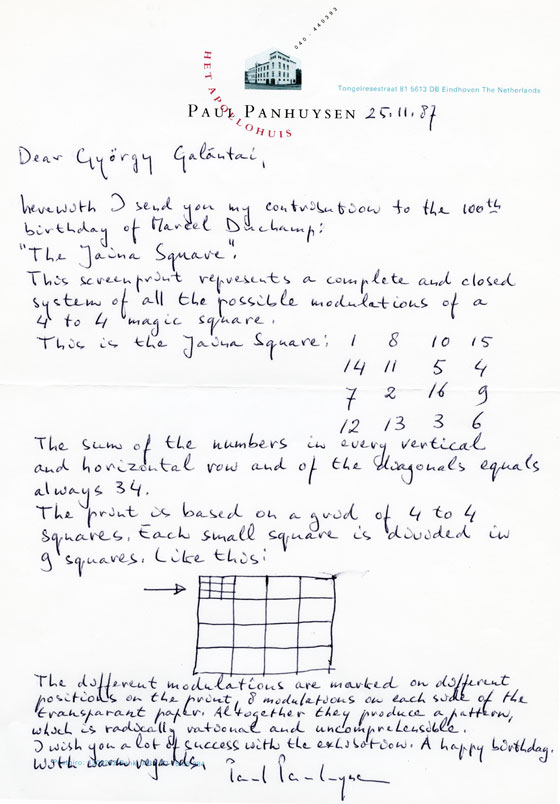 040-440393
HET APOLLOHUIS
Tongelresestraat 81 5613 DB Eindhoven The Netherlands
PAUL PANHUYSEN 25.11.87
Dear György Galántai,
herewith I send you my contribution to the 100th
birthday of Marcel Duchamp:
"The Jaina Square".
This screenprint represents a complete and closed
system of all the possible modulations of a
4 to 4 magic square.
This is the Jaina Square: 1 8 10 15
14 11 5 4
7 2 16 9
12 13 3 6
The sum of the numbers in every vertical
and horizontal row and of the diagonals equals
always 34.
The print is based on a grid of 4 to 4
squares. Each small square is divided in
9 squares. Like this:
The different modulations are marked on different
positions on the print, 8 modulations on each side of the
transparant paper. Altogether they produce a pattern,
which is radically rational and uncomprehensible.
I wish you a lot of success with the exhibition. A happy birthday.
With warm regards,
Paul Panhuysen